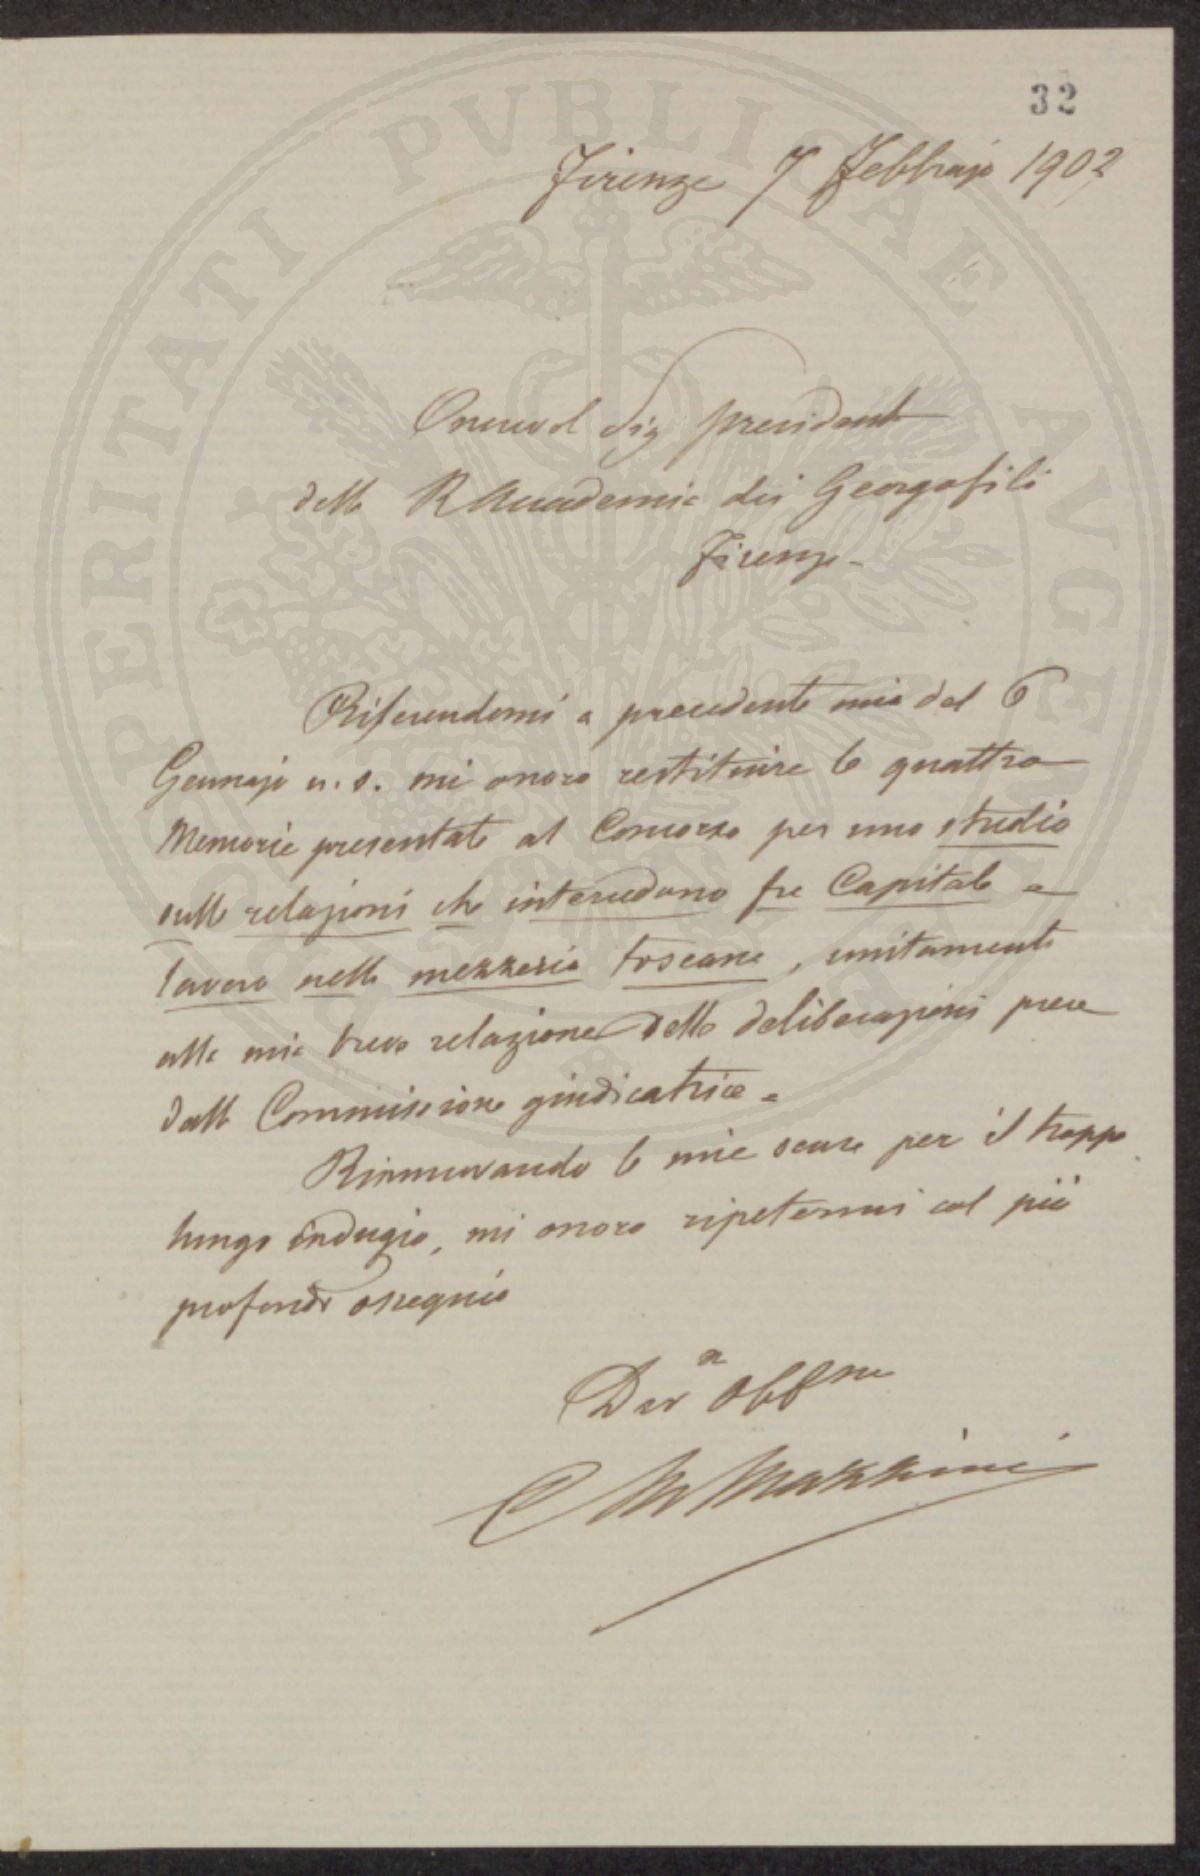 32
Firenze 7 Febbrajo 1902
Onorevol Sig Presidente
della R Accademia dei Georgofili
Firenze -
Riferendomi a precedente mia del 6
Gennajo u. s. mi onoro restituire le quattro
Memorie presentate al Concorso per uno studio
sulle relazioni che intercedono fra Capitale e
lavoro nella mezzeria toscana, unitamente
alla mia breve relazione delle deliberazioni prese
dalla Commissione giudicatrice -
Rinnuovando le mie scuse per il troppo
lungo indugio, mi onoro ripetermi col più
profondo ossequio
Devº Obbmo
C M Mazzini
PROSPERITATI PVBLICAE AVGENDAE